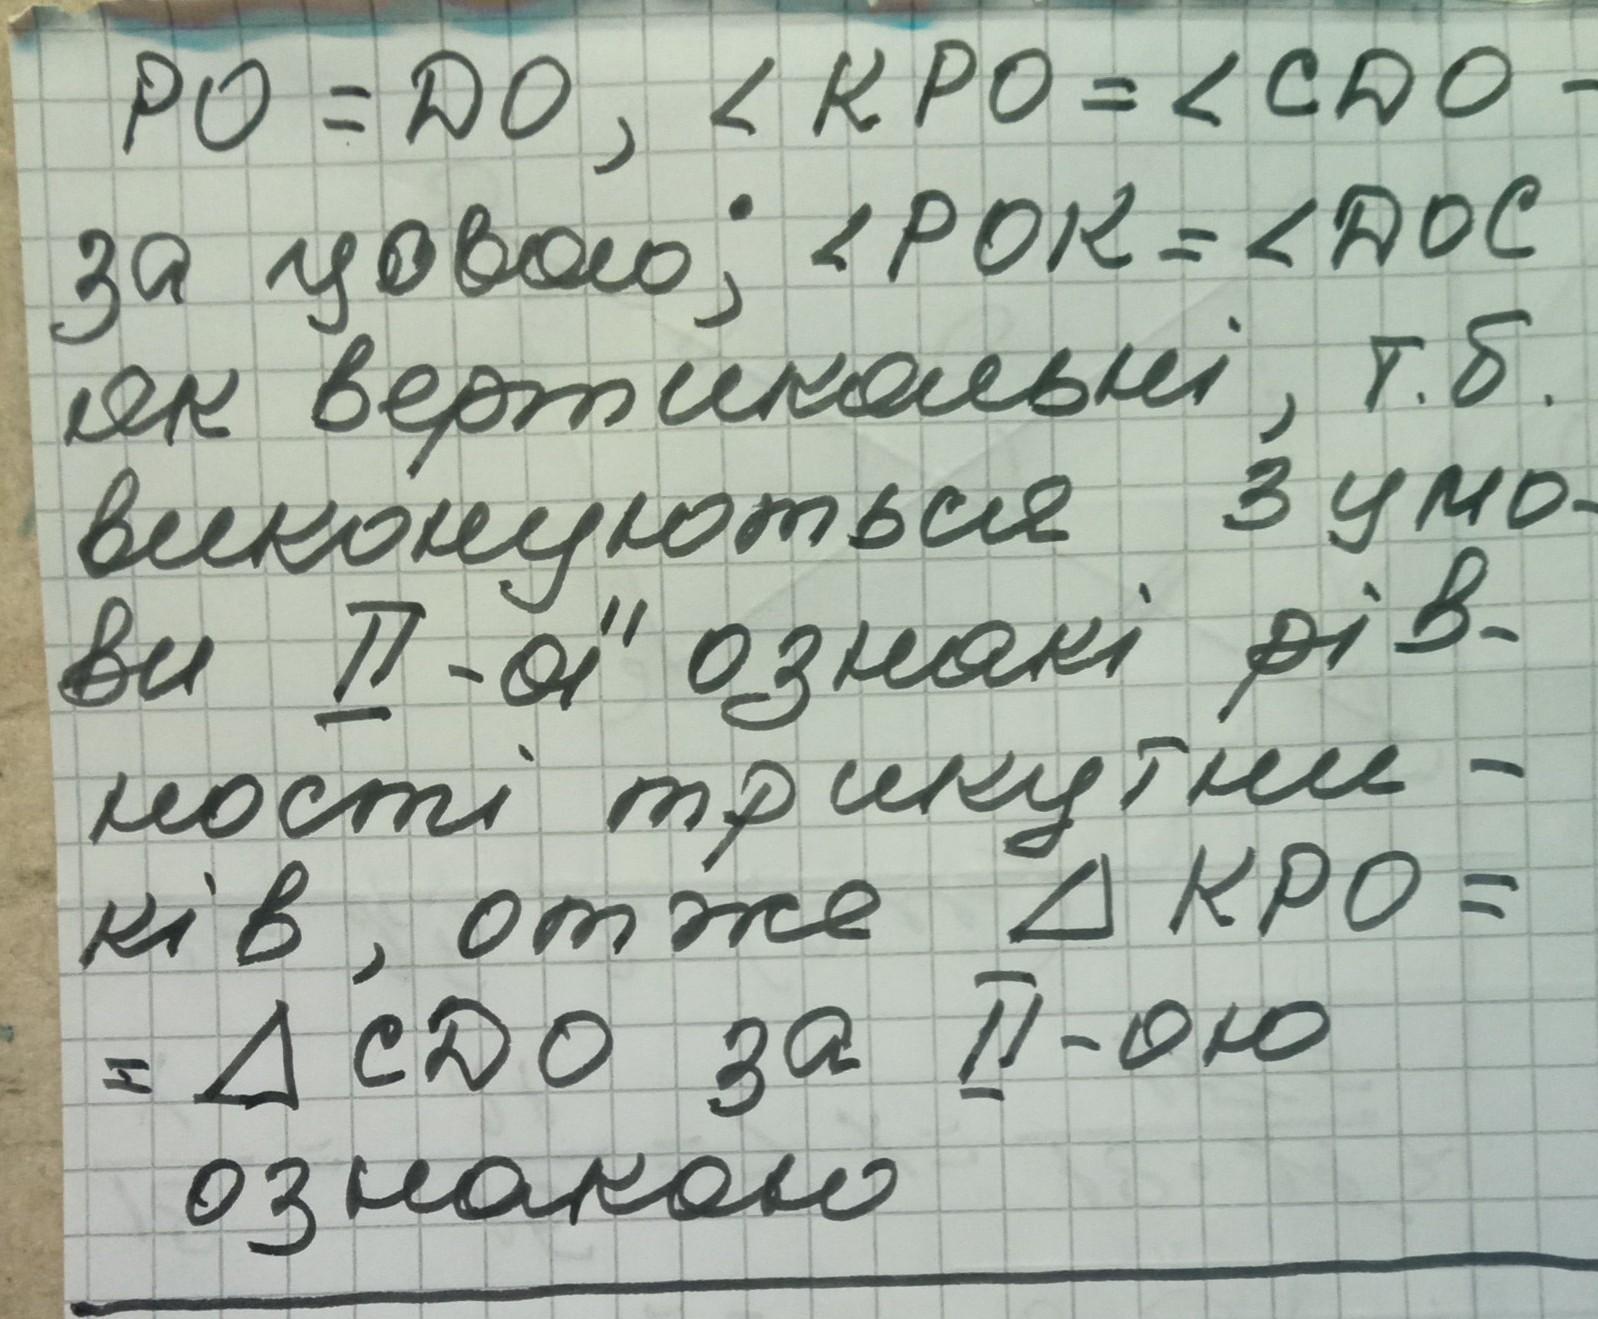 PO = DO, < KPO = < CDO -
за уовою; < POK = < DOC
як вертикальні, т.б.
виконуються 3 умо-
ви II-ої ознакі рів-
ності трикутни-
ків, отже Δ KPO =
= Δ CDO за II-ою
ознакою